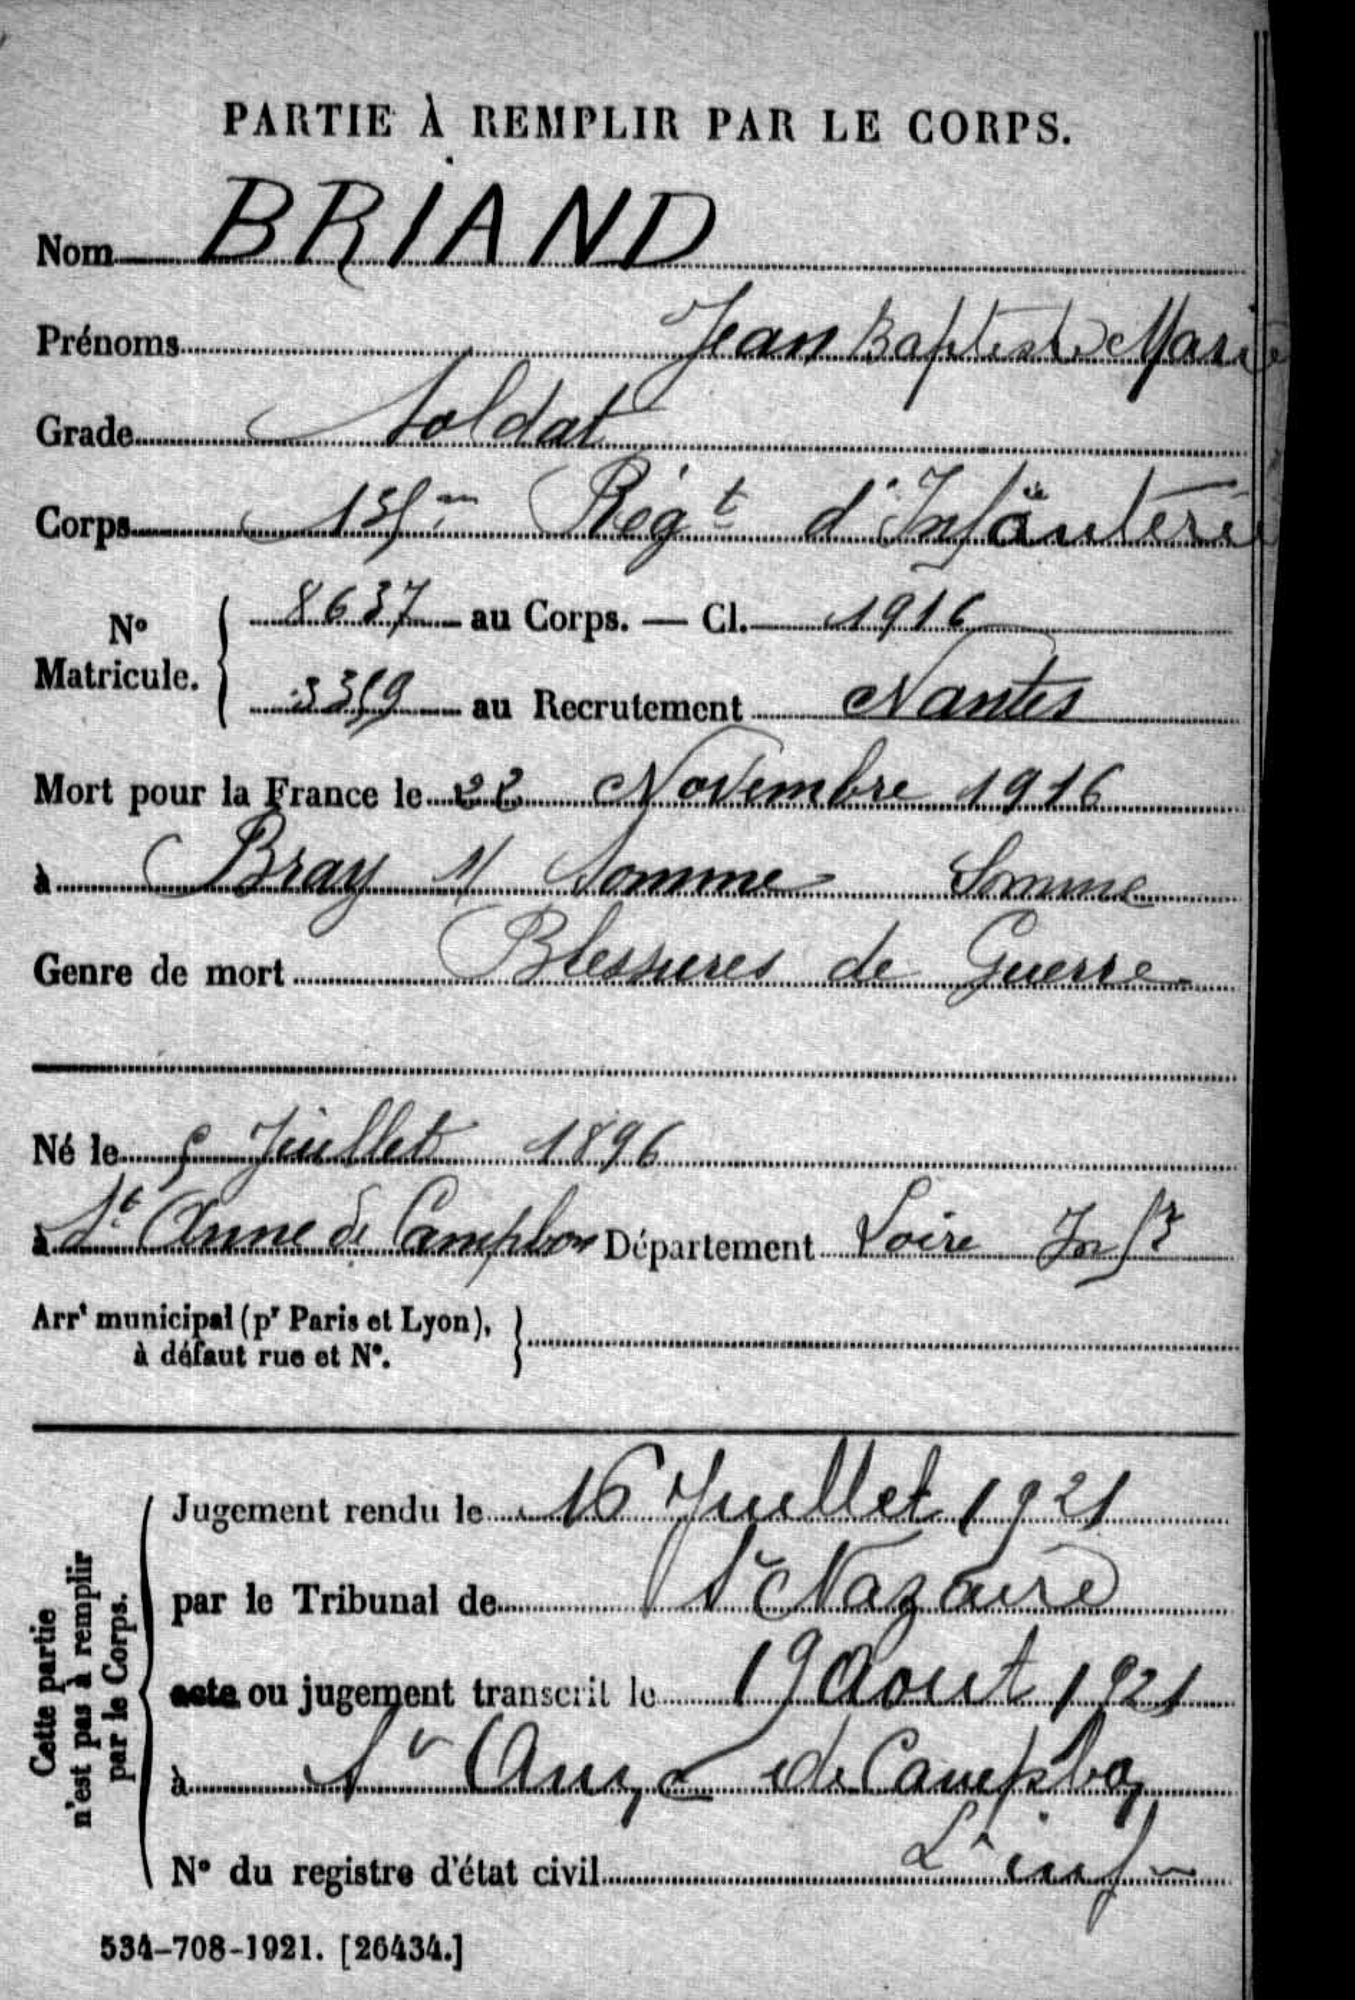 PARTIE À REMPLIR PAR LE CORPS.
Nom BRIAND
Prénoms Jean Baptiste Marie
Grade Soldat
Corps Régt d'Infanterie
No Matricule. 8637 au Corps. — Cl. 1916
3359 au Recrutement Nantes
Mort pour la France le 22 Novembre 1916
à Bray s/ Somme Somme
Genre de mort Blessures de Guerre
Né le 5 Juillet 1896
à St Anne de Campbon Département Loire Infre
Arrt municipal (pr Paris et Lyon),
à défaut rue et No.
Cette partie
n'est pas à remplir
par le Corps.
Jugement rendu le 16 Juillet 1921
par le Tribunal de St Nazaire
acte ou jugement transcrit le 19 Aout 1921
à Ste Anne de Campbon
No du registre d'état civil Lre inf
534-708-1921. [26434.]